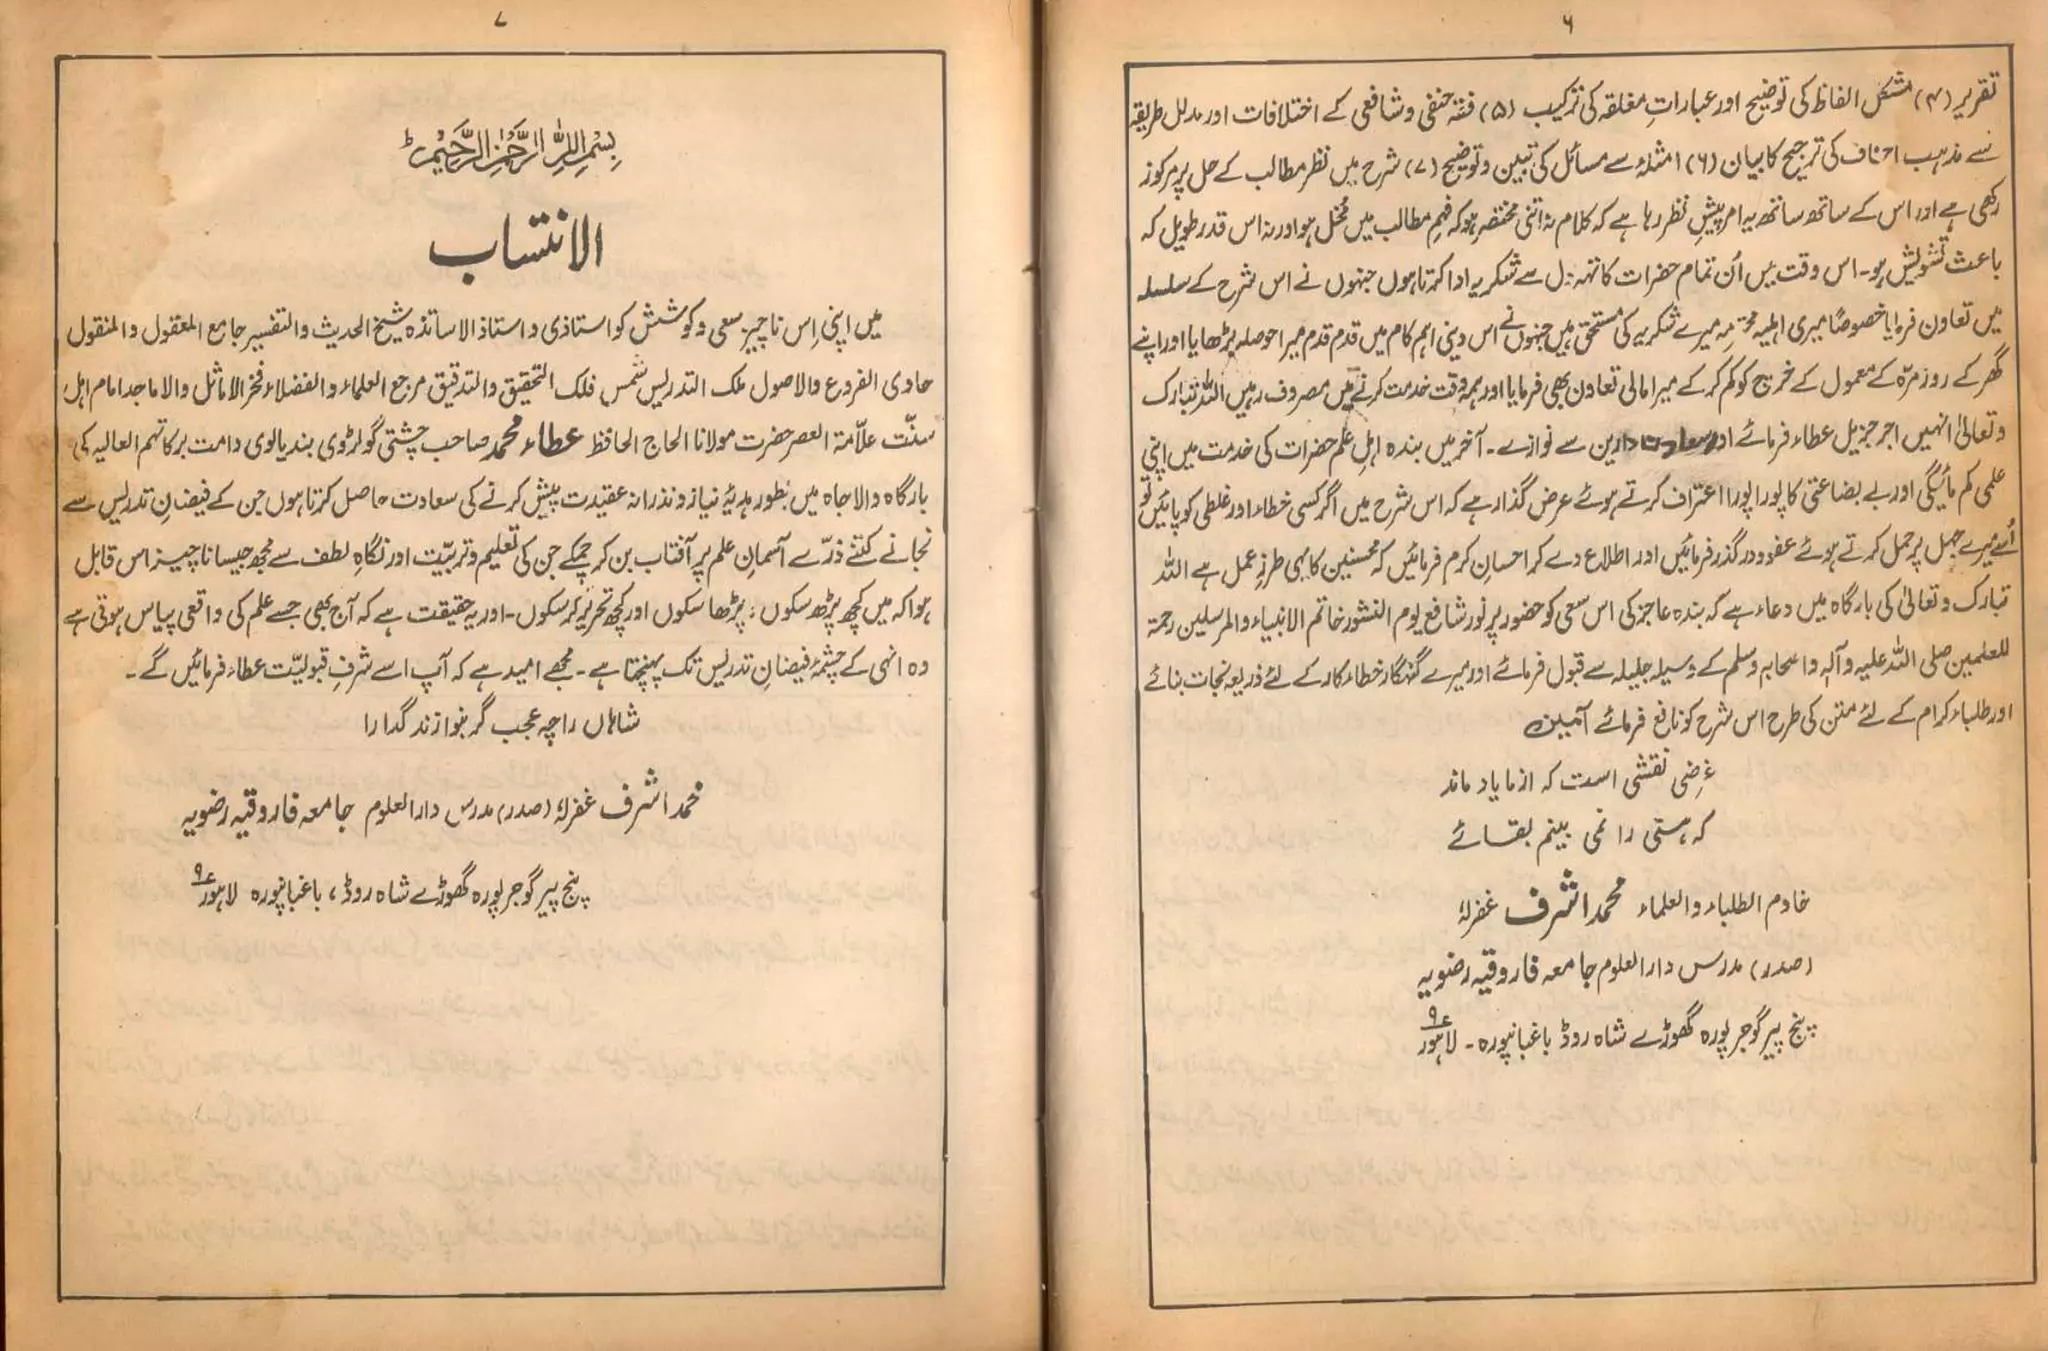 ۶
تقریر (۴) مشکل الفاظ کی توضیح اور عباراتِ مغلقہ کی ترکیب (۵) فقہ حنفی و شافعی کے اختلافات اور مدلل طریقہ
سے مذہب احناف کی ترجیح کا بیان (۶) امثلہ سے مسائل کی تبیین و توضیح (۷) شرح میں نظر مطالب کے حل پر مرکوز
رکھی ہے اور اس کے ساتھ ساتھ یہ امر پیشِ نظر رہا ہے کہ کلام نہ اتنی مختصر ہو کہ فہم مطالب میں مُخل ہو اور نہ اس قدر طویل کہ
باعث تشویش ہو۔ اس وقت میں اُن تمام حضرات کا تہہ دل سے شکریہ ادا کرتا ہوں جنہوں نے اس شرح کے سلسلہ
میں تعاون فرمایا خصوصًا میری اہلیہ محترمہ میرے شکریہ کی مستحق ہیں جنہوں نے اس دینی اہم کام میں قدم قدم میرا حوصلہ بڑھایا اور اپنے
گھر کے روز مرّہ کے معمول کے خرچ کو کم کر کے میرا مالی تعاون بھی فرمایا اور ہمہ وقت خدمت کرنے میں مصروف رہیں اللہ تبارک
و تعالیٰ انہیں اجر جزیل عطاء فرمائے اور سعادت دارین سے نوازے۔ آخر میں بندہ اہلِ علم حضرات کی خدمت میں اپنی
علمی کم مائیگی اور بے بضاعتی کا پورا پورا اعتراف کرتے ہوئے عرض گذار ہے کہ اس شرح میں اگر کسی خطاء اور غلطی کو پائیں تو
اُسے میرے جہل پر حمل کرتے ہوئے عفو و درگذر فرمائیں اور اطلاع دے کر احسانِ کرم فرمائیں کہ محسنین کا یہی طرزِ عمل ہے اللہ
تبارک و تعالیٰ کی بارگاہ میں دعاء ہے کہ بندہ عاجز کی اس سعی کو حضور پر نور شافع یوم النشور خاتم الانبیاء والمرسلین رحمۃ
للعلمین صلی اللہ علیہ و آلہ و اصحابہ وسلم کے وسیلہ جلیلہ سے قبول فرمائے اور میرے گنہگار خطاء کار کے لئے ذریعہ نجات بنائے
اور طلباء کرام کے لئے متن کی طرح اس شرح کو نافع فرمائے آمین
غرضی نقشی است کہ از ما یاد ماند
کہ ہستی را نمی بینم بقائے
خادم الطلباء والعلماء محمد اشرف غفرلہٗ
(صدر) مدرس دارالعلوم جامعہ فاروقیہ رضویہ
پنج پیر گوجر پورہ گھوڑے شاہ روڈ باغبانپورہ۔ لاہور ۹
۷
بِسْمِ اللہِ الرَّحْمٰنِ الرَّحِیْمِ ط
الانتساب
میں اپنی اِس ناچیز سعی و کوشش کو استاذی و استاذ الاساتذہ شیخ الحدیث والتفسیر جامع المعقول والمنقول
حاوی الفروع والاصول ملک التدریس شمس فلک التحقیق والتدقیق مرجع العلماء والفضلاء فخر الاماثل والاماجد امام اہل
سنّت علاّمۃ العصر حضرت مولانا الحاج الحافظ عطاء محمد صاحب چشتی گولڑوی بندیالوی دامت برکاتہم العالیہ کی
بارگاہ والا جاہ میں بطور ہدیۂ نیاز و نذرانہ عقیدت پیش کرنے کی سعادت حاصل کرتا ہوں جن کے فیضانِ تدریس سے
نجانے کتنے ذرّے آسمانِ علم پر آفتاب بن کر چمکے جن کی تعلیم و تربیّت اور نگاہِ لطف سے مجھ جیسا ناچیز اس قابل
ہوا کہ میں کچھ پڑھ سکوں، پڑھا سکوں اور کچھ تحریر کر سکوں۔ اور یہ حقیقت ہے کہ آج بھی جسے علم کی واقعی پیاس ہوتی ہے
وہ انہی کے چشمۂ فیضانِ تدریس تک پہنچتا ہے۔ مجھے امید ہے کہ آپ اسے شرفِ قبولیّت عطاء فرمائیں گے۔
شاہاں راچہ عجب گر بنوازند گدا را
محمد اشرف غفرلہٗ (صدر) مدرس دارالعلوم جامعہ فاروقیہ رضویہ
پنج پیر گوجر پورہ گھوڑے شاہ روڈ، باغبانپورہ لاہور ۹